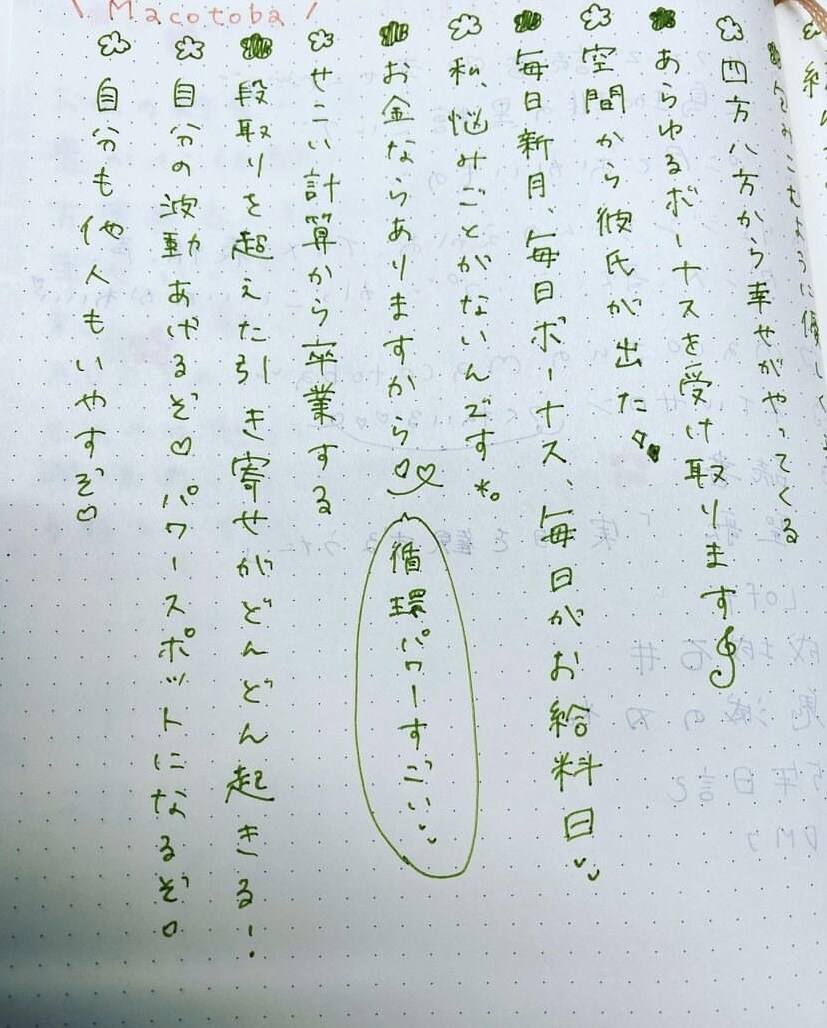 \ Macotoba /
四方八方から幸せがやってくる
あらゆるボーナスを受け取ります
空間から彼氏が出た
毎日新月、毎日ボーナス、毎日がお給料日
私、悩みごとがないんです
お金ならありますから♡♡
循環パワーすごい
せこい計算から卒業する
段取りを超えた引き寄せがどんどん起きる!
自分の波動あげるぞ♡パワースポットになるぞ
自分も他人もいやすぞ♡